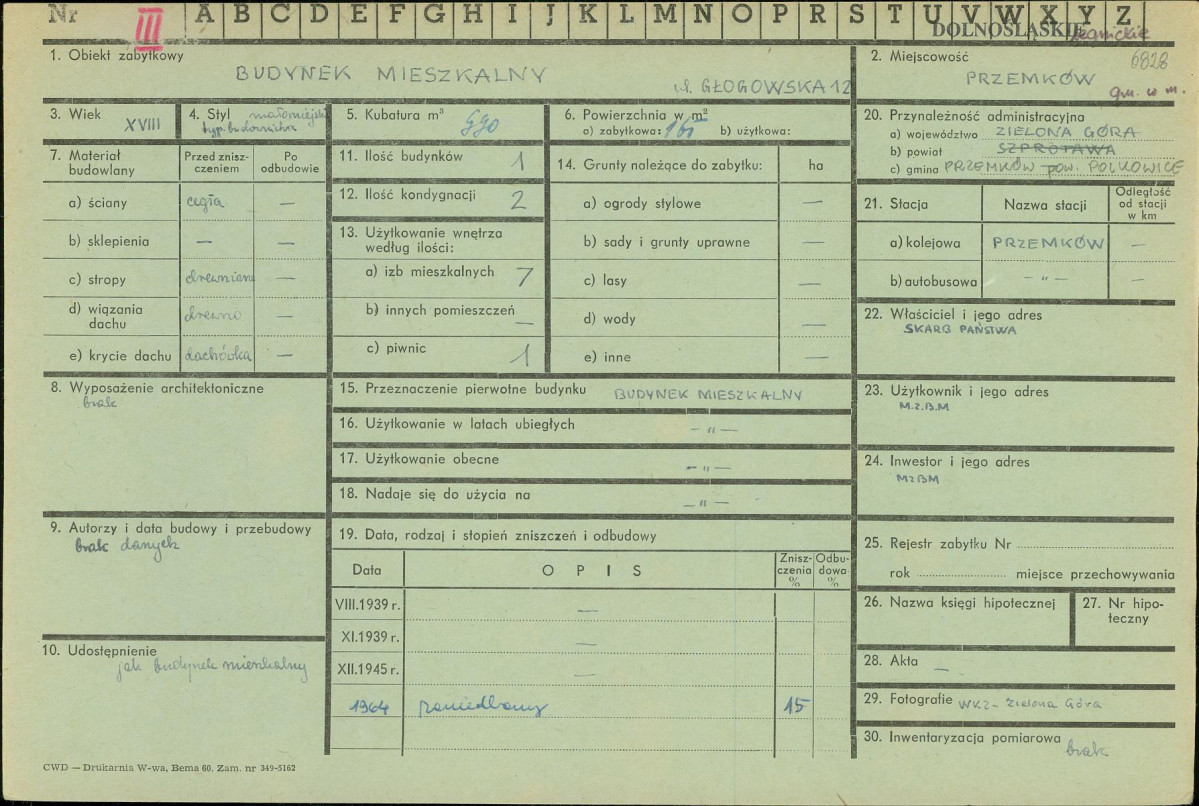 Nr III A B C D E F G H I J K L M N O P R S T U V W X Y Z
DOLNOŚLĄSKIE legnickie
1. Obiekt zabytkowy
BUDYNEK MIESZKALNY
ul. GŁOGOWSKA 12
2. Miejscowość 6828
PRZEMKÓW
gm. w m.
3. Wiek XVIII
4. Styl małomiejski
typ. budownictwa
5. Kubatura m³ 990
6. Powierzchnia w m²
a) zabytkowa: 165 b) użytkowa:
20. Przynależność administracyjna
a) województwo ZIELONA GÓRA
b) powiat SZPROTAWA
c) gmina PRZEMKÓW pow. POLKOWICE
7. Materiał budowlany
Przed zniszczeniem
Po odbudowie
a) ściany cegła —
b) sklepienia — —
c) stropy drewniane —
d) wiązania dachu drewno —
e) krycie dachu dachówka —
11. Ilość budynków 1
12. Ilość kondygnacji 2
13. Użytkowanie wnętrza
według ilości:
a) izb mieszkalnych 7
b) innych pomieszczeń —
c) piwnic 1
14. Grunty należące do zabytku: ha
a) ogrody stylowe —
b) sady i grunty uprawne —
c) lasy —
d) wody —
e) inne —
21. Stacja Nazwa stacji Odległość od stacji w km
a) kolejowa PRZEMKÓW —
b) autobusowa – „ – —
22. Właściciel i jego adres
SKARB PAŃSTWA
8. Wyposażenie architektoniczne
brak
15. Przeznaczenie pierwotne budynku BUDYNEK MIESZKALNY
16. Użytkowanie w latach ubiegłych – „ –
17. Użytkowanie obecne – „ –
18. Nadaje się do użycia na – „ –
23. Użytkownik i jego adres
M.Z.B.M
24. Inwestor i jego adres
MZBM
9. Autorzy i data budowy i przebudowy
brak danych
19. Data, rodzaj i stopień zniszczeń i odbudowy
Data OPIS Zniszczenia % Odbudowa %
VIII.1939 r. —
XI.1939 r. —
XII.1945 r. —
1964 zaniedbany 15
25. Rejestr zabytku Nr
rok miejsce przechowywania
26. Nazwa księgi hipotecznej
27. Nr hipoteczny
10. Udostępnienie
jak budynek mieszkalny
28. Akta —
29. Fotografie WKZ – Zielona Góra
30. Inwentaryzacja pomiarowa brak
CWD — Drukarnia W-wa, Bema 60. Zam. nr 349-5162